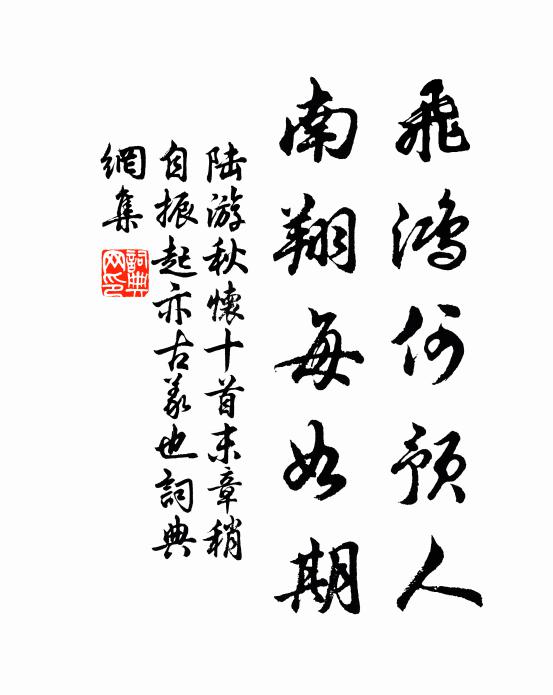 飛鴻何預人
南翔每如期
陆游秋懷十首末章稍
自振起亦古義也詞典
網集
詞典
网印